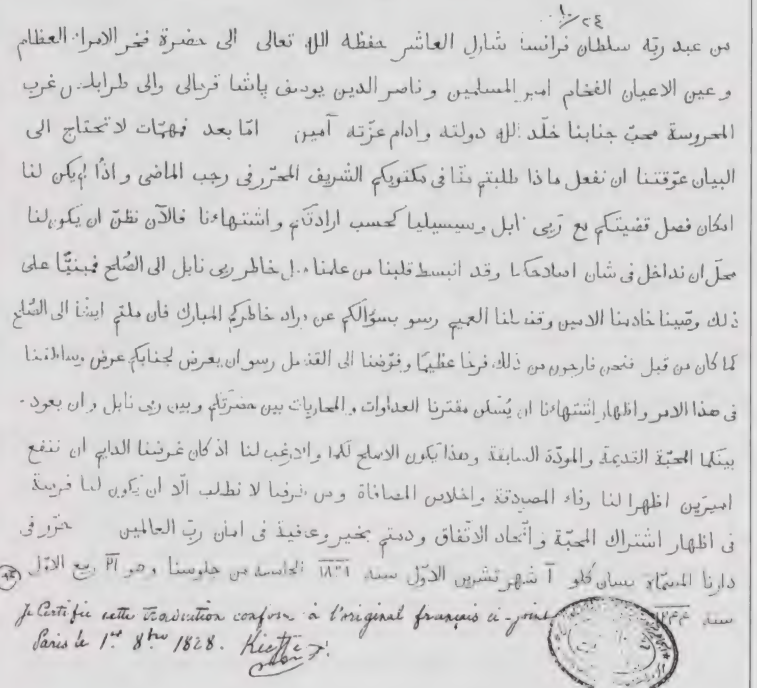 من عبد ربّه سلطان فرانسا شارل العاشر حفظه الله تعالى الى حضرة فخر الامراء العظام
و عين الاعيان الفخام امير المسلمين و ناصر الدين يوسف پاشا قرمالى والى طرابلس غرب
المحروسة محبّ جنابنا خلّد الله دولته و ادام عزّته آمين امّا بعد فمهمّات لا تحتاج الى
البيان عوّقتنا ان نفعل ما ذا طلبتم منّا فى مكتوبكم الشريف المحرّر فى رجب الماضى و اذًا لم يكن لنا
امكان فصل قضيتكم مع رَىى نابل و سيسيليا كحسب ارادتكم و اشتهاءنا فالآن نظنّ ان يكون لنا
محلّ ان نداخل فى شان اصلاحكما و قد انبسط قلبنا من علمنا ميل خاطر رىى نابل الى الصُلح فمبنيًّا على
ذلك وصّينا خادمنا الامين وقنصلنا العميم رسو بسؤالكم عن مراد خاطركم المبارك فان ملتم ايضًا الى الصُلح
كما كان من قبل فنحن فارحون من ذلك فرحًا عظيمًا و فوّضنا الى القنصل رسو ان يعرض لجنابكم عرض وساطتنا
فى هذا الامر و اظهار اشتهاءنا ان العداوات و المحاربات بين حضرتكم و بين رىى نابل و ان يعود
بينكما المحبّة القديمة و المودّة السابقة و هذا يكون الاصلح لكما و الارغب لنا اذ كان غرضنا الدايم ان ننفع
اميرين اظهرا لنا وفاء المصدقة و اخلاص المصافاة و من غرضنا لا نطلب الّا ان يكون لنا فرصة
فى اظهار اشتراك المحبّة و اتّحاد الاتّفاق و دمتم بخير و عافية فى امان ربّ العالمين حرّر فى
دارنا المسمّاة بسان كلو شهر تشرين الاوّل سنة ١٨٢٨ الخامسة من جلوسنا و هو ٢١ ربيع الاوّل
سنة ١٢٤٤
Je Certifie cette Traduction conforme à l'original français ci-joint
Paris le 1er 8bre 1828. Kieffer